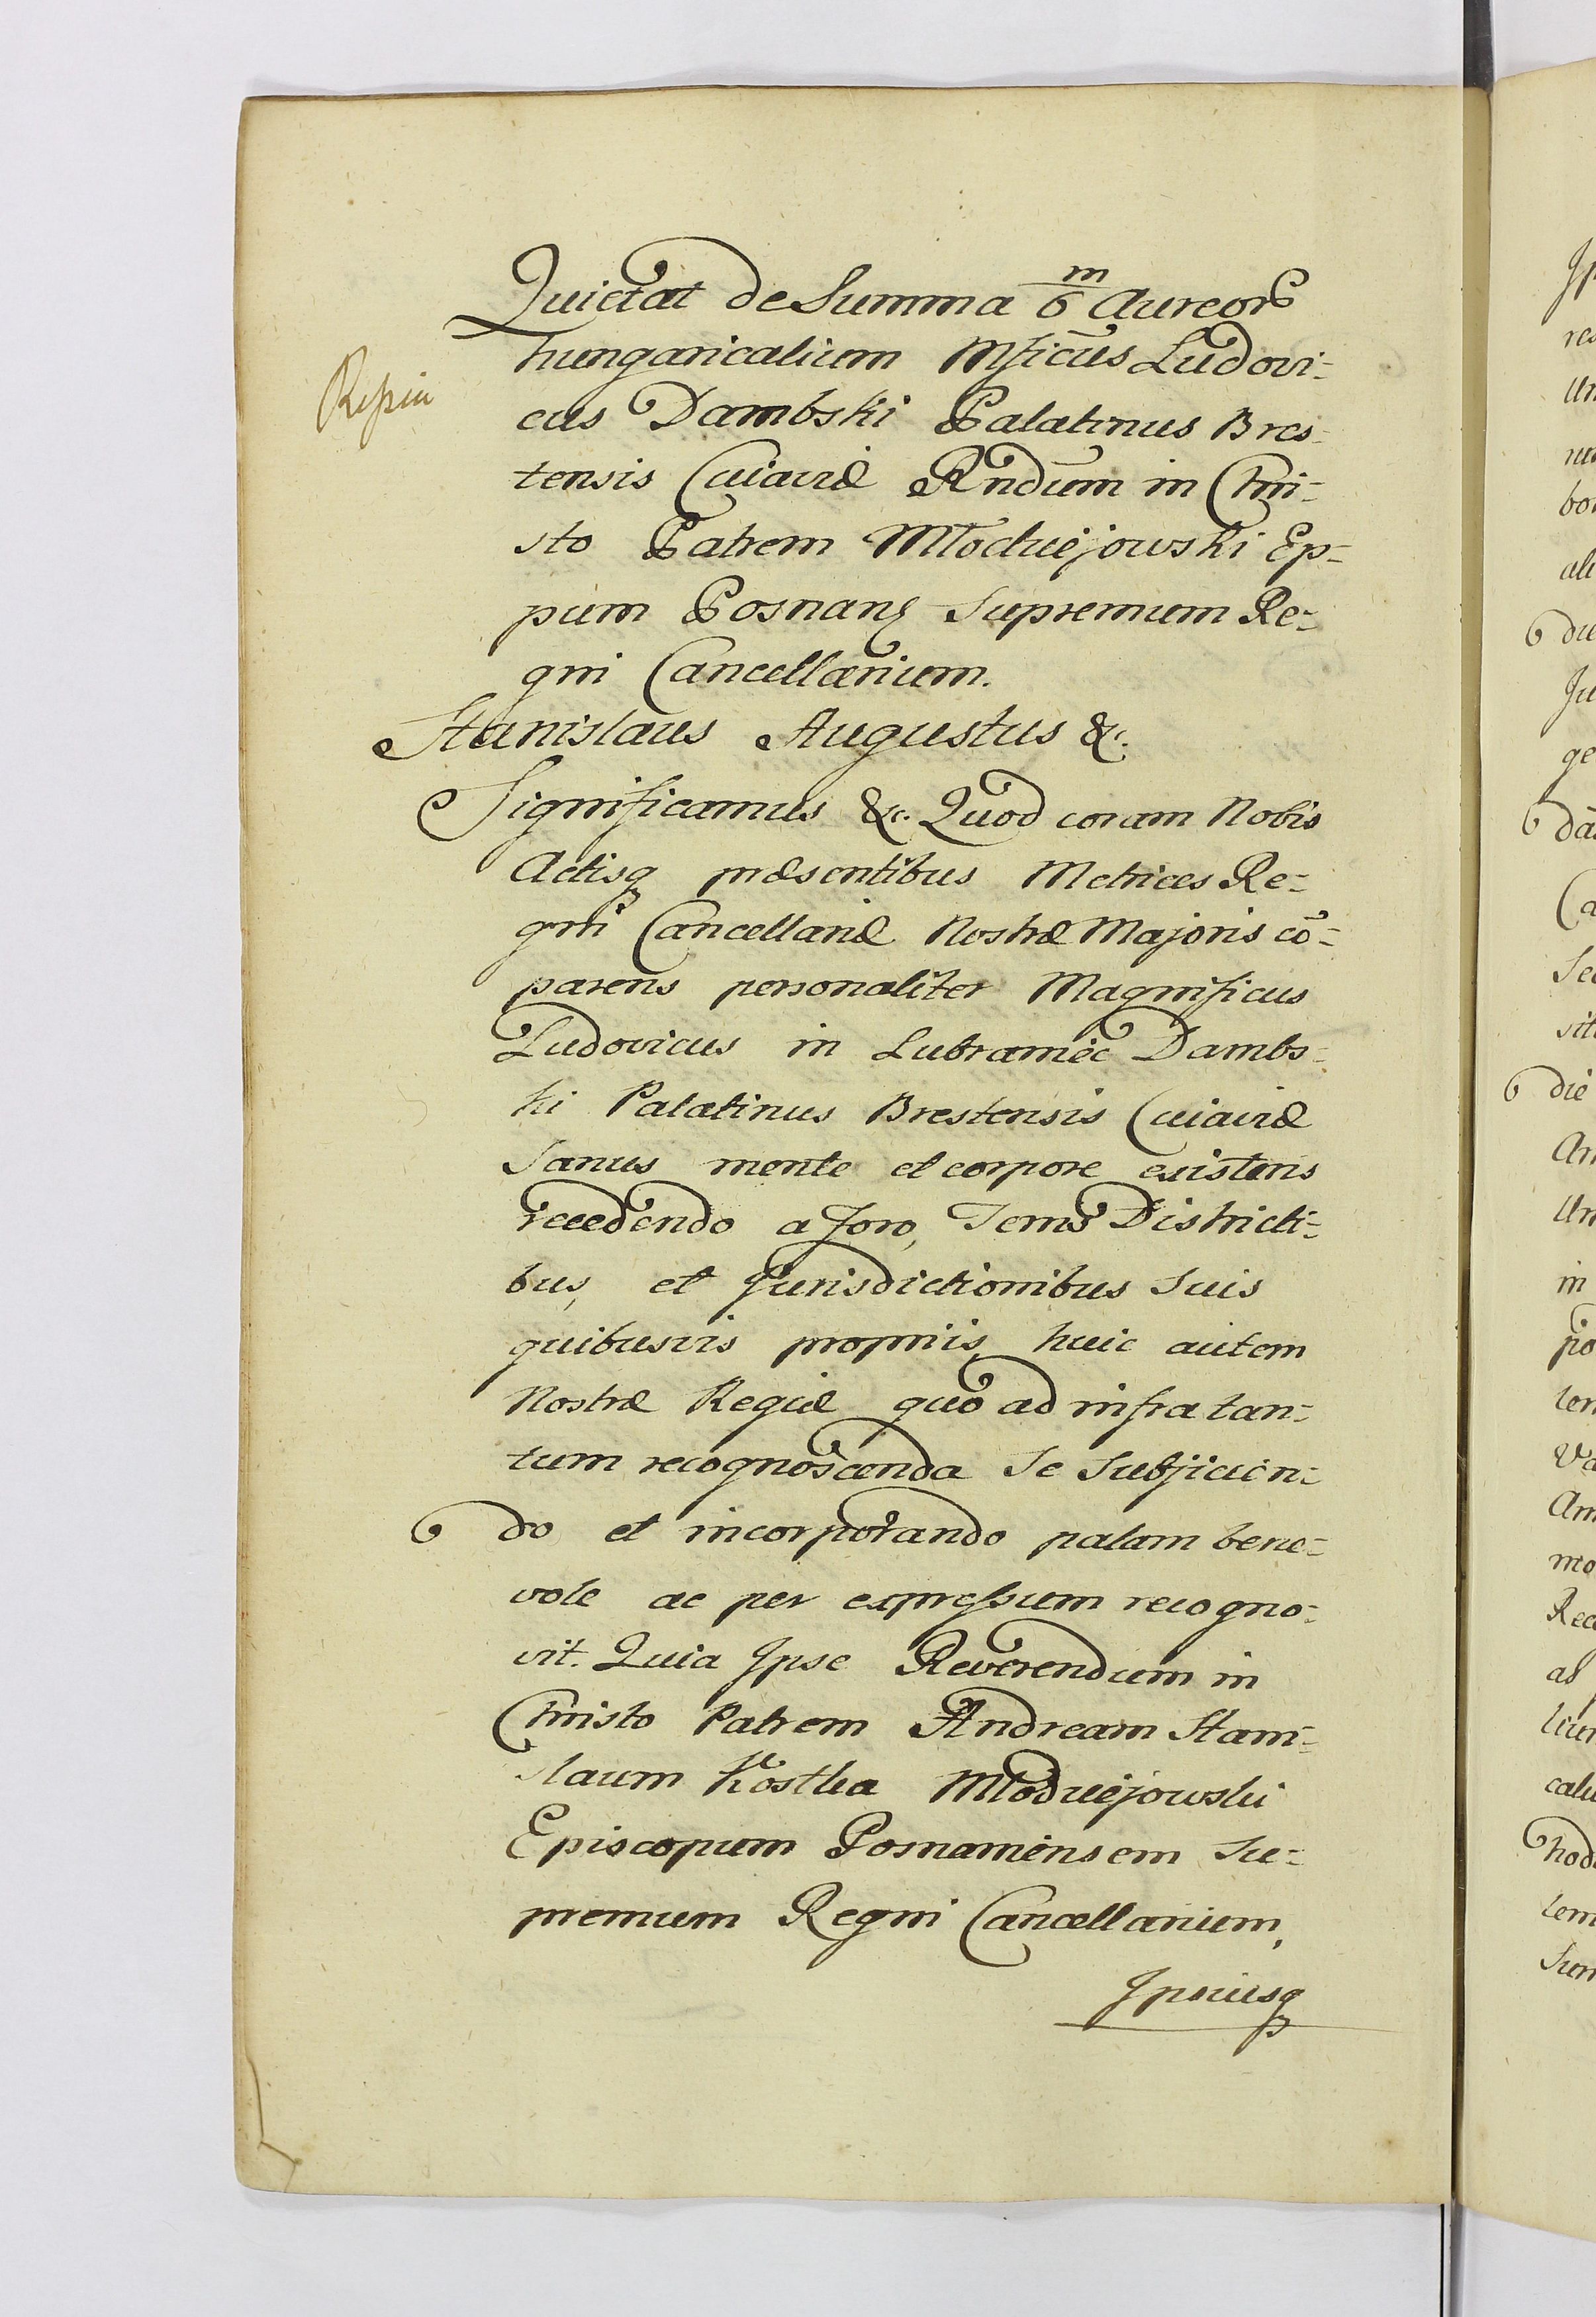 Quietat de Summa 6/m Aureor
hungaricalium Mficus Ludovi-
cus Dambski Palatinus Bres-
tensis Cuiaviæ Rndum in Chri-
sto Patrem Młodziejowski Ep-
pum Posnan Supremum Re-
gni Cancellarium.
Stanislaus Augustus &c.
Significamus &c. Quod coram Nobis
Actisq præsentibus Metrices Re-
gni Cancellariæ Nostræ Majoris cō-
parens personaliter Magnificus
Ludovicus in Lubraniec Dambs-
ki Palatinus Brestensis Cuiaviæ
Sanus mente et corpore existens
recedendo a foro, Terris Districti-
bus, et Jurisdictionibus Suis
quibusvis propriis, huic autem
Nostræ Regiæ quo ad infra tan-
tum recognoscenda Se Subjicien-
do et incorporando palam bene-
vole ac per expressum recogno-
vit. Quia Ipse Reverendum in
Christo Patrem Andream Stani-
slaum Kostka Młodziejowski
Episcopum Posnaniensem Su-
premum Regni Cancellarium,
Ipsiusq